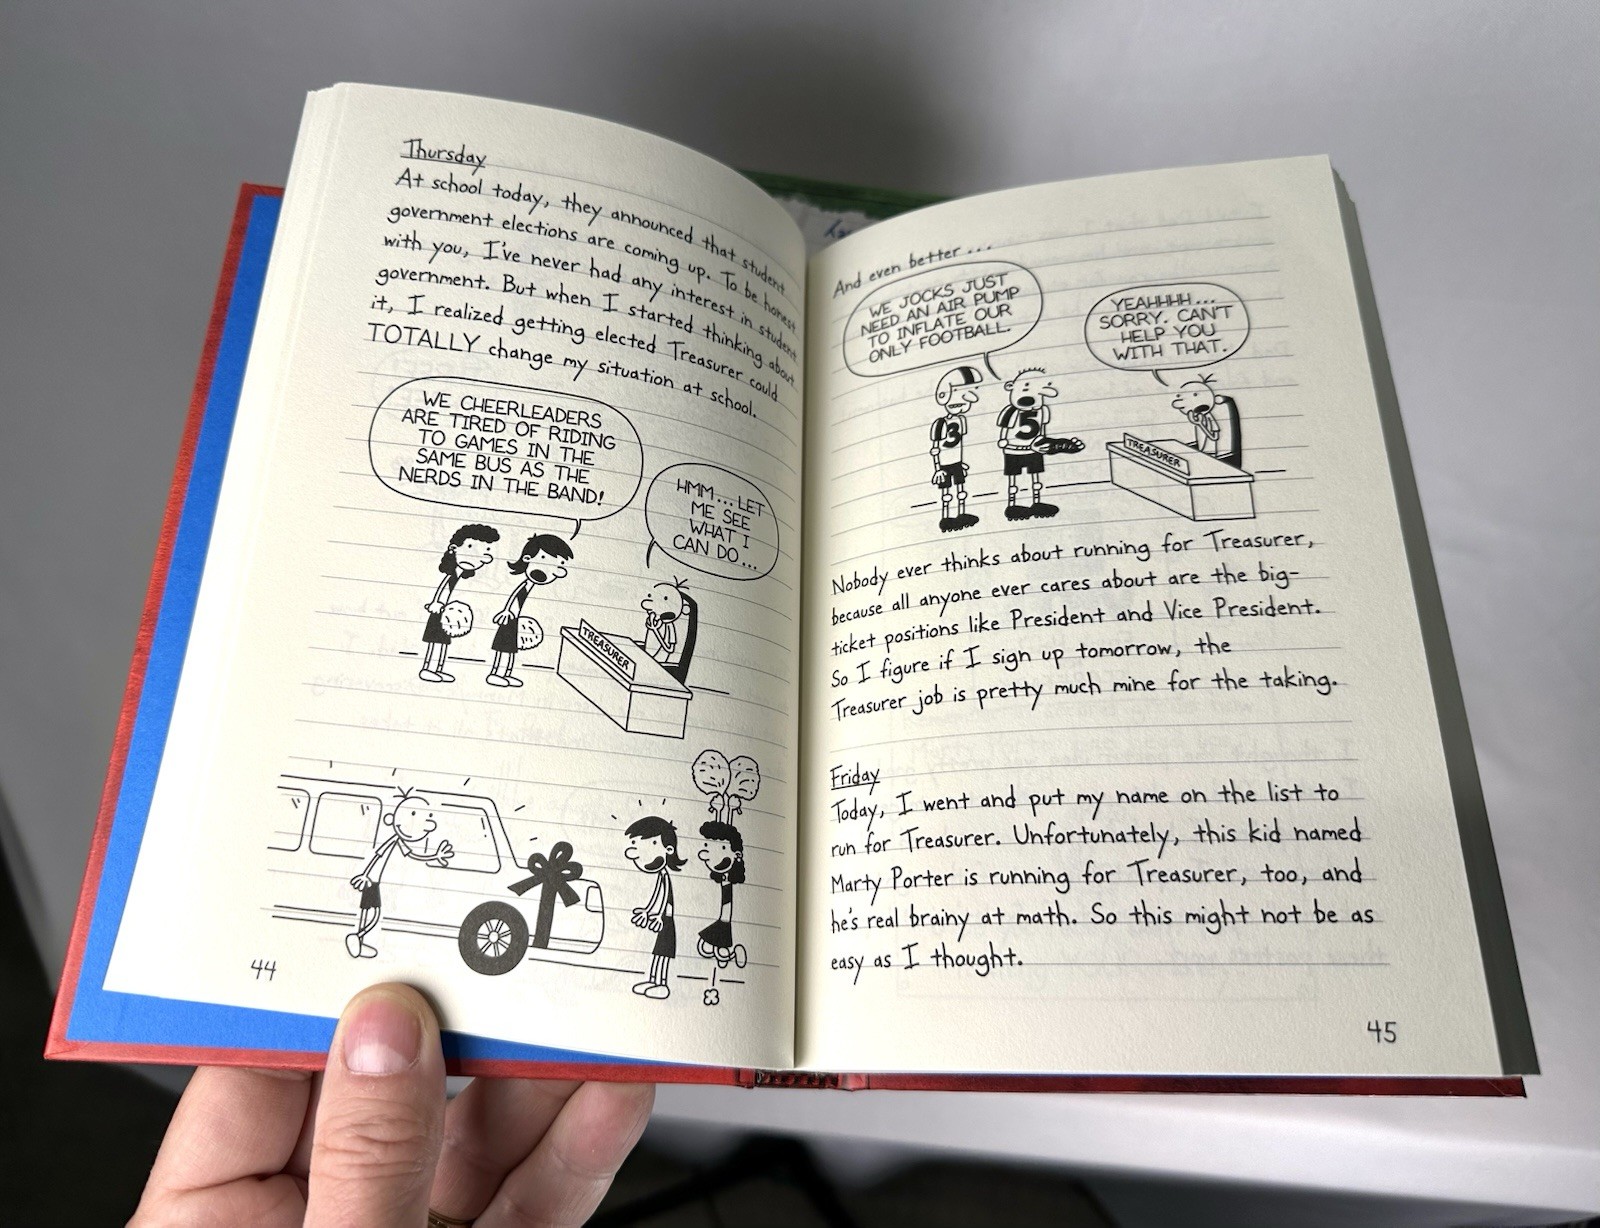 Thursday
At school today, they announced that student
government elections are coming up. To be honest
with you, I've never had any interest in student
government. But when I started thinking about
it, I realized getting elected Treasurer could
TOTALLY change my situation at school.
WE CHEERLEADERS
ARE TIRED OF RIDING
TO GAMES IN THE
SAME BUS AS THE
NERDS IN THE BAND!
HMM... LET
ME SEE
WHAT I
CAN DO...
TREASURER
44
And even better...
WE JOCKS JUST
NEED AN AIR PUMP
TO INFLATE OUR
ONLY FOOTBALL.
YEAHHHH...
SORRY. CAN'T
HELP YOU
WITH THAT.
3
5
TREASURER
Nobody ever thinks about running for Treasurer,
because all anyone ever cares about are the big-
ticket positions like President and Vice President.
So I figure if I sign up tomorrow, the
Treasurer job is pretty much mine for the taking.
Friday
Today, I went and put my name on the list to
run for Treasurer. Unfortunately, this kid named
Marty Porter is running for Treasurer, too, and
he's real brainy at math. So this might not be as
easy as I thought.
45